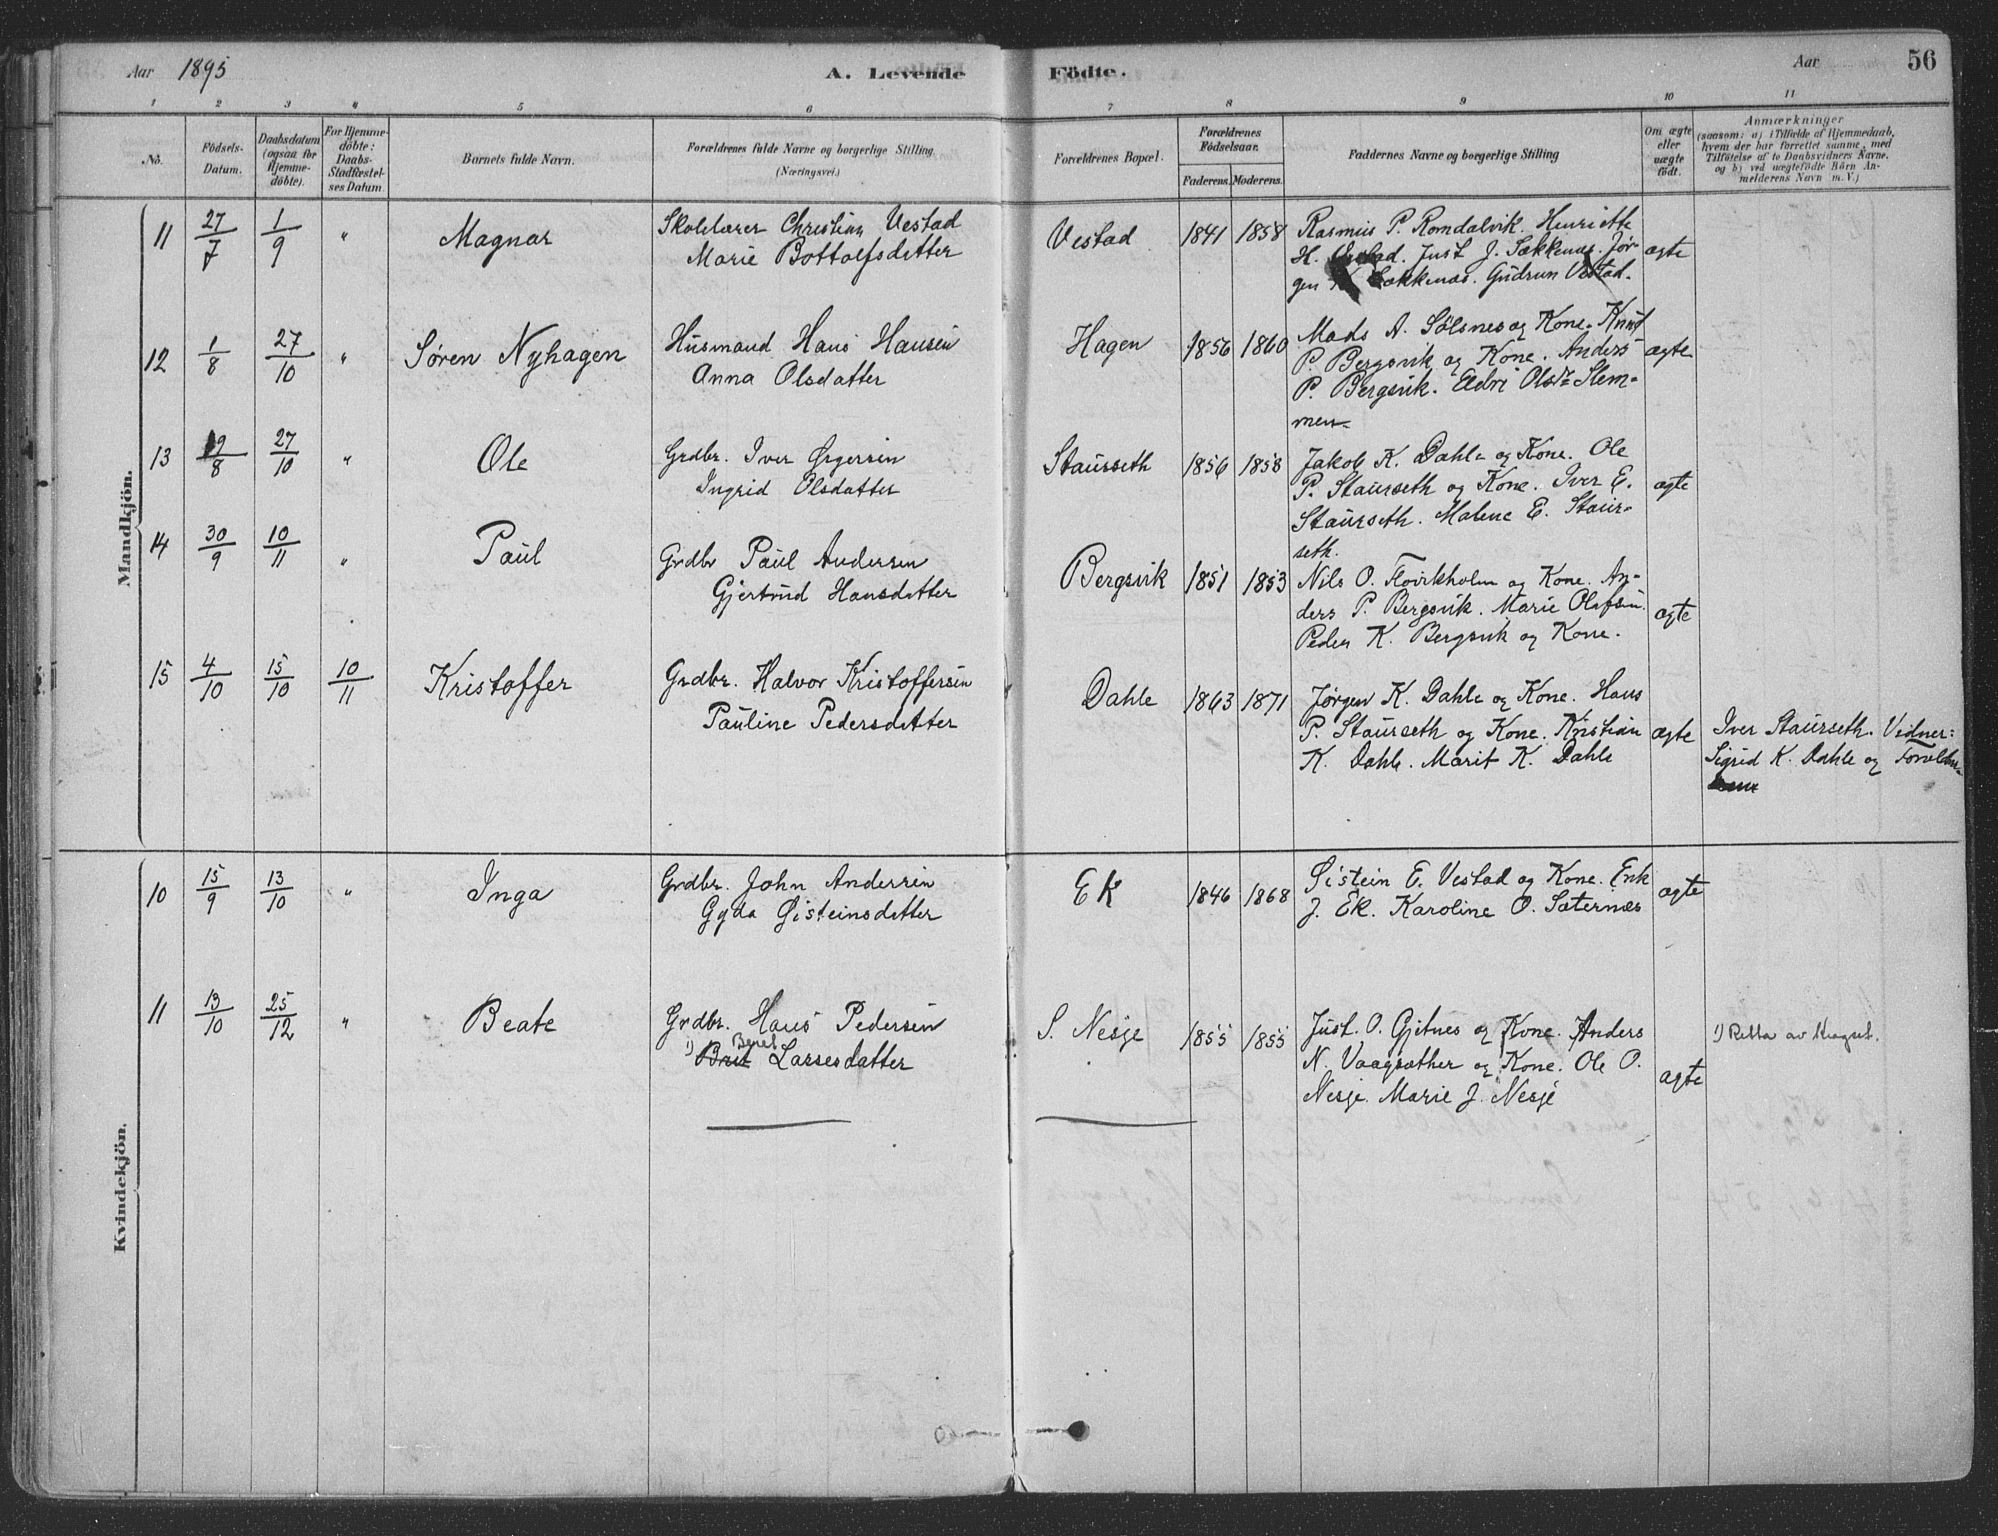 Aar 1895 A. Levende Födte. Aar 56
1 2 3 4 5 6 7 8 9 10 11
No.
Födsels-
Datum.
Daabsdatum
(ogsaa for
Hjemme-
döbte).
For Hjemme-
döbte:
Daabs-
Stadfæstel-
ses Datum.
Barnets fulde Navn.
Forældrenes fulde Navne og borgerlige Stilling
(Næringsvei.)
Forældrenes Bopæl.
Forældrenes
Födselsaar.
Faderens. Moderens.
Faddernes Navne og borgerlige Stilling
Om ægte
eller
uægte
födt.
Anmærkninger
(saasom: a) i Tilfælde af Hjemmedaab,
hvem der har forrettet samme, med
Tilföielse af to Daabsvidners Navne,
og b) ved uægtefödte Börn An-
melderens Navn m. V.)
Mandkjön.
11 27/7 1/9 " Magnar
Skolelærer Christian Vestad
Marie Bottolfsdatter
Vestad 1841 1858
Rasmus P. Romdalvik. Henriette
H. Vestad. Just J. Sækkenæs. Jør-
gen Sækkenæs. Gudrun Vestad.
ægte
12 1/8 27/10 " Søren Nyhagen
Husmand Hans Hansen
Anna Olsdatter
Hagen 1856 1860
Mads A. Sölsnes og Kone. Knut
P. Bergsvik og Kone. Anders
P. Bergsvik. Eldri Olsdr Slem-
men
ægte
13 9/8 27/10 " Ole
Grdbr. Iver
Ingrid Olsdatter
Staurseth 1856 1858
Jakob K. Dahle og Kone. Ole
P. Staurseth og Kone. Iver E.
Staurseth. Malene E. Staur-
seth.
ægte
14 30/9 10/11 " Paul
Grdbr Paul Andersen
Gjertrud Hansdatter
Bergsvik 1851 1853
Nils O. Flovikholm og Kone. An-
ders P. Bergsvik. Marie Olafsen.
Peder K. Bergsvik og Kone.
ægte
15 4/10 15/10 10/11 Kristoffer
Grdbr. Halvor Kristoffersen
Pauline Pedersdatter
Dahle 1863 1871
Jørgen K. Dahle og Kone. Hans
P. Staurseth og Kone. Kristian
K. Dahle. Marit K. Dahle
ægte
Iver Staurseth. Vidner:
Sigrid K. Dahle og Forældre-
Kvindekjön.
10 15/9 13/10 " Inga
Grdbr. John Andersen
Gyda Øisteinsdatter
Ek 1846 1868
Øistein E. Vestad og Kone. Erik
J. Ek. Karoline O. Sæternes
ægte
11 13/10 25/12 " Beate
Grdbr. Hans Pedersen
1) Brit Beret Larsesdatter
S. Nesje 1855 1855
Just. O. Gjitnes og Kone. Anders
N. Vaagsæther og Kone. Ole O.
Nesje. Marie J. Nesje
ægte
1) Retta av